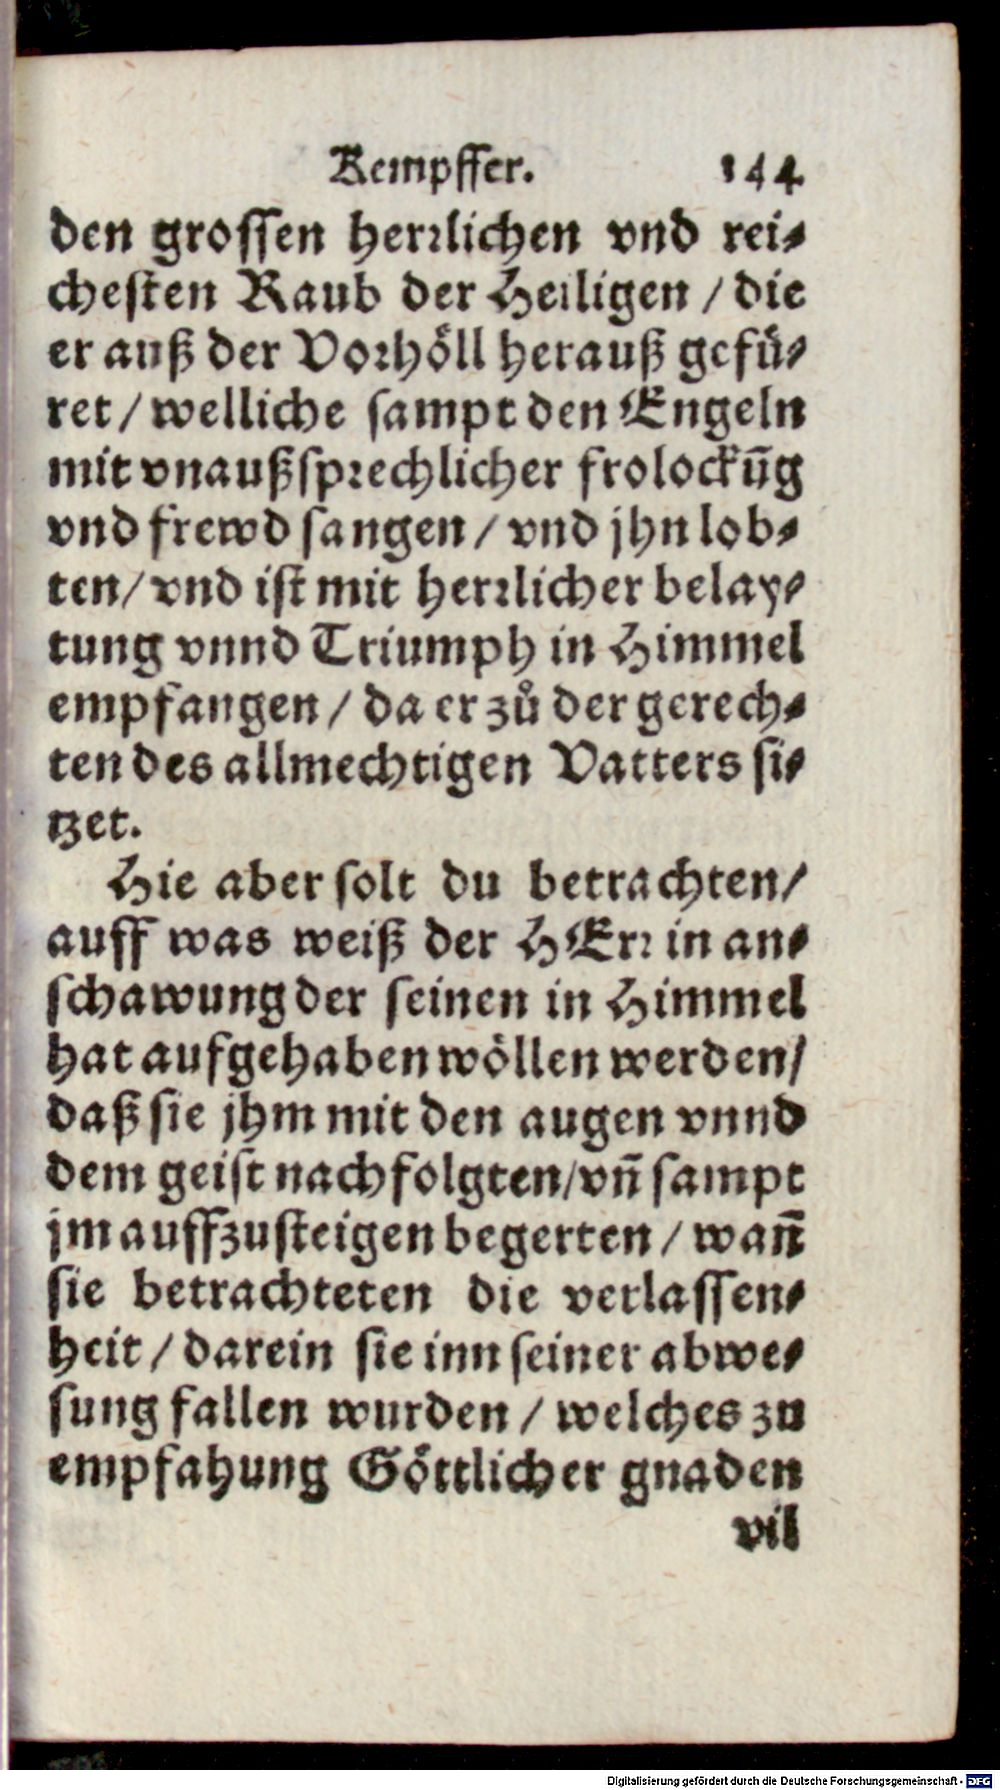 Kempffer. 144
den grossen herꝛlichen vnd rei⸗
chesten Raub der Heiligen / die
er auß der Voꝛhöll herauß gefü⸗
ret / welliche sampt den Engeln
mit vnaußspꝛechlicher frolockūg
vnd frewd sangen / vnd jhn lob⸗
ten / vnd ist mit herꝛlicher belay⸗
tung vnnd Triumph in Himmel
empfangen / da er zů der gerech⸗
ten des allmechtigen Vatters si⸗
tzet.
Hie aber solt du betrachten /
auff was weiß der HErꝛ in an⸗
schawung der seinen in Himmel
hat aufgehaben wöllen werden /
daß sie jhm mit den augen vnnd
dem geist nachfolgten / vn̄ sampt
jm auffzusteigen begerten / wan̄
sie betrachteten die verlassen⸗
heit / darein sie inn seiner abwe⸗
sung fallen wurden / welches zu
empfahung Göttlicher gnaden
vil
Digitalisierung gefördert durch die Deutsche Forschungsgemeinschaft - DFG